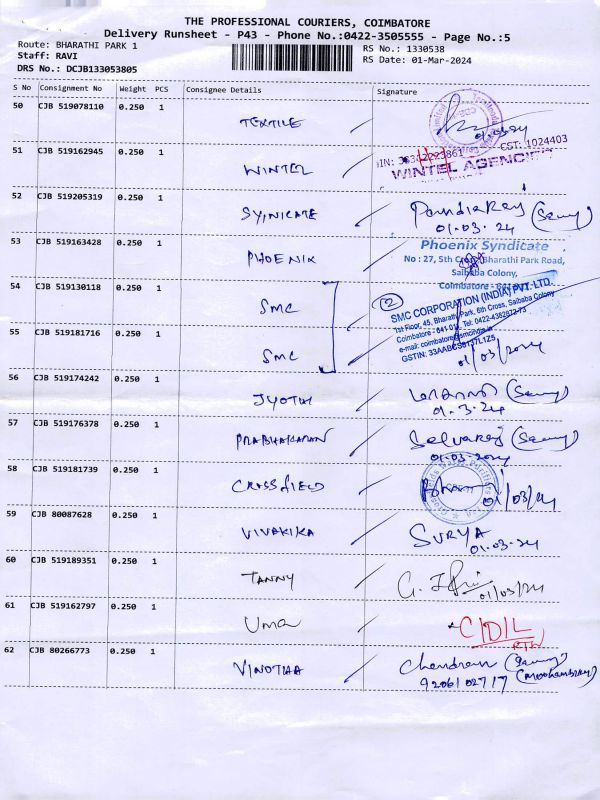 THE PROFESSIONAL COURIERS, COIMBATORE
Delivery Runsheet - P43 - Phone No.:0422-3505555 - Page No.:5
Route: BHARATHI PARK 1
RS No.: 1330538
Staff: RAVI
RS Date: 01-Mar-2024
DRS No.: DCJB133053805
S No Consignment No Weight PCS Consignee Details Signature
50 CJB 519078110 0.250 1
TEXTILE 01.03.24
51 CJB 519162945 0.250 1
CST: 1024403
WINTEL WINTEL AGENCI
52 CJB 519205319 0.250 1
SYINICATE
01.03.24
53 CJB 519163428 0.250 1
PHOENIX
Phoenix Syndicate
No : 27, 5th Cross, Bharathi Park Road,
Saibaba Colony,
Coimbatore
54 CJB 519130118 0.250 1
SMC
2
SMC CORPORATION (INDIA) PVT. LTD.
1st Floor, 45, Bharathi Park, 6th Cross, Saibaba Colony
Coimbatore - 641 011. Tel: 0422-4382872-73
e-mail: coimbatore@smcindia.in
GSTIN:
55 CJB 519181716 0.250 1
SMC 01/03/2024
56 CJB 519174242 0.250 1
JYOTHI
01.3.24
57 CJB 519176378 0.250 1
PRABHAKARAN Selvaraj
01.03.2024
58 CJB 519181739 0.250 1
CROSSFIELD 01/03/24
59 CJB 80087628 0.250 1
VIVAKIKA SURYA
01.03.24
60 CJB 519189351 0.250 1
TANNY
01/03/24
61 CJB 519162797 0.250 1
Uma C/D/L
RTN
62 CJB 80266773 0.250 1
VINOTHA Chandran
9206102717